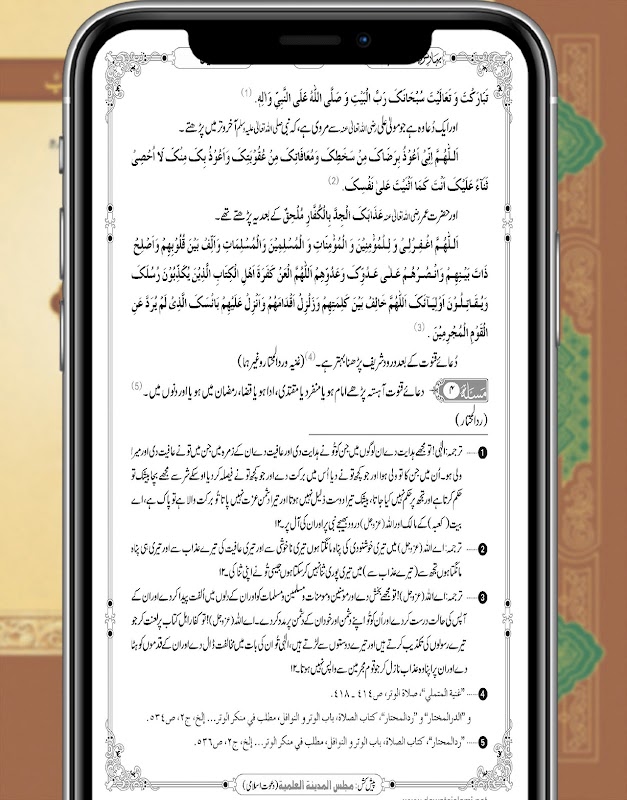 تَبَارَكْتَ وَ تَعَالَيْتَ سُبْحَانَكَ رَبَّ الْبَيْتِ وَ صَلَّى اللّٰهُ عَلَى النَّبِيِّ وَاٰلِهٖ. (1)
اور ایک دُعا وہ ہے جو مولیٰ علی رضی اللہ تعالٰی عنہ سے مروی ہے، کہ نبی صلی اللہ تعالٰی علیہ وسلم آخر وتر میں پڑھتے۔
اَللّٰهُمَّ اِنِّيْ اَعُوْذُ بِرِضَاكَ مِنْ سَخَطِكَ وَمُعَافَاتِكَ مِنْ عُقُوْبَتِكَ وَاَعُوْذُ بِكَ مِنْكَ لَا اُحْصِيْ
ثَنَاءً عَلَيْكَ اَنْتَ كَمَا اَثْنَيْتَ عَلٰى نَفْسِكَ. (2)
اور حضرت عمر رضی اللہ تعالٰی عنہ عَذَابَكَ الْجِدَّ بِالْكُفَّارِ مُلْحِقٌ کے بعد یہ پڑھتے تھے۔
اَللّٰهُمَّ اغْفِرْلِيْ وَ لِلْمُؤْمِنِيْنَ وَ الْمُؤْمِنَاتِ وَ الْمُسْلِمِيْنَ وَ الْمُسْلِمَاتِ وَاَلِّفْ بَيْنَ قُلُوْبِهِمْ وَاَصْلِحْ
ذَاتَ بَيْنِهِمْ وَانْصُرْهُمْ عَلٰى عَدُوِّكَ وَعَدُوِّهِمْ اَللّٰهُمَّ الْعَنْ كَفَرَةَ اَهْلِ الْكِتَابِ الَّذِيْنَ يُكَذِّبُوْنَ رُسُلَكَ
وَيُقَاتِلُوْنَ اَوْلِيَآئَكَ اَللّٰهُمَّ خَالِفْ بَيْنَ كَلِمَتِهِمْ وَزَلْزِلْ اَقْدَامَهُمْ وَاَنْزِلْ عَلَيْهِمْ بَاْسَكَ الَّذِيْ لَمْ يُرَدَّ عَنِ
الْقَوْمِ الْمُجْرِمِيْنَ. (3)
دُعائے قنوت کے بعد درود شریف پڑھنا بہتر ہے۔ (4) (غنیہ و ردالمحتار وغیرہما)
مسئلہ ۴ دعائے قنوت آہستہ پڑھے امام ہو یا منفرد یا مقتدی، ادا ہو یا قضا، رمضان میں ہو یا اور دنوں میں۔ (5)
(ردالمحتار)
1 ترجمہ: الٰہی! تو مجھے ہدایت دے ان لوگوں میں جن کو تُو نے ہدایت دی اور عافیت دے ان کے زمرہ میں جن میں تو نے عافیت دی اور میرا
ولی ہو۔ اُن میں جن کا تو ولی ہوا اور جو کچھ تو نے دیا اُس میں برکت دے اور جو کچھ تو نے فیصلہ کر دیا اوسکے شر سے مجھے بچا بیشک تو
حکم کرتا ہے اور تجھ پر حکم نہیں کیا جاتا، بیشک تیرا دوست ذلیل نہیں ہوتا اور تیرا دشمن عزت نہیں پاتا تُو برکت والا ہے تو پاک ہے، اے
بیت (کعبہ) کے مالک اور اللہ (عزوجل) درود بھیجے نبی پر اور ان کی آل پر۔ ۱۲
2 ترجمہ: اے اللہ (عزوجل) میں تیری خوشنودی کی پناہ مانگتا ہوں تیری ناخوشی سے اور تیری عافیت کی تیرے عذاب سے اور تیری ہی پناہ
مانگتا ہوں تجھ سے (تیرے عذاب سے) میں تیری پوری ثنا نہیں کر سکتا ہوں جیسی تُو نے اپنی ثنا کی۔ ۱۲
3 ترجمہ: اے اللہ (عزوجل)! تو مجھے بخش دے اور مومنین و مومنات و مسلمین و مسلمات کو اور ان کے دلوں میں اُلفت پیدا کر دے اور ان کے
آپس کی حالت درست کر دے اور اُن کو تُو اپنے دشمن اور خود ان کے دشمن پر مدد کر دے۔ اے اللہ (عزوجل)! تو کفار اہل کتاب پر لعنت کر جو
تیرے رسولوں کی تکذیب کرتے ہیں اور تیرے دوستوں سے لڑتے ہیں، الٰہی تُو ان کی بات میں مخالفت ڈال دے اور ان کے قدموں کو ہٹا
دے اور ان پر اپنا وہ عذاب نازل کر جو قوم مجرمین سے واپس نہیں ہوتا۔ ۱۲
4 "غنية المتملي"، صلاة الوتر، ص٤١٤ ـ ٤١٨.
و "الدرالمختار" و "ردالمحتار"، كتاب الصلاة، باب الوتر و النوافل، مطلب في منكر الوتر... إلخ، ج٢، ص٥٣٤.
5 "ردالمحتار"، كتاب الصلاة، باب الوتر و النوافل، مطلب في منكر الوتر... إلخ، ج٢، ص٥٣٦.
پیش کش: مجلس المدينة العلمية (دعوت اسلامی)